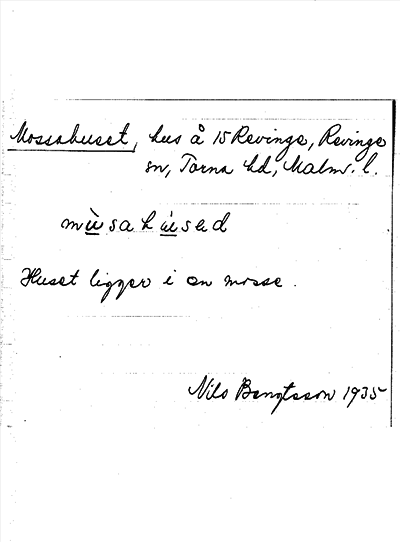 Mossahuset, hus å 15 Revinge, Revinge
sn, Torna hd, Malm. l.
mùsahúsəd
Huset ligger i en mosse.
Nils Bengtsson 1935